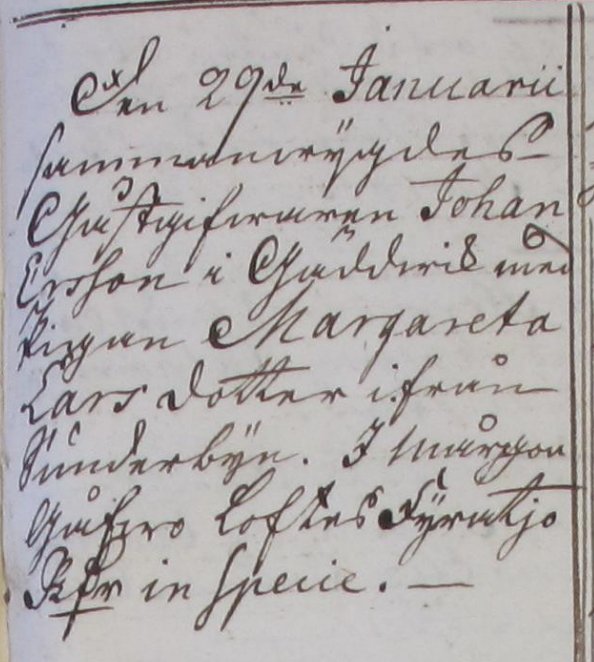 Den 29de Januarii
sammanwygdes
Gästgifwaren Johan
Ersson i Gäddwik med
Pigan Margareta
Lars dotter ifrån
Sunderbyn. I Mårgon
Gåfwo Loftes Fyratjo
Rdr in Specie. —